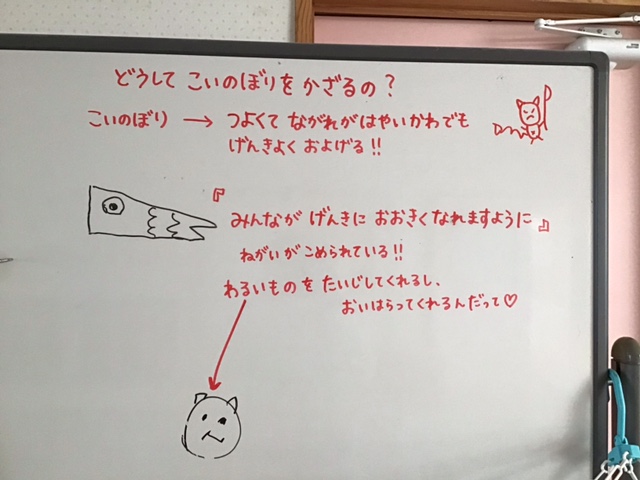 どうして こいのぼりを かざるの？
こいのぼり → つよくて ながれがはやいかわでも
げんきよく およげる!!
『みんなが げんきに おおきくなれますように』
ねがいがこめられている!!
わるいものを たいじしてくれるし、
おいはらってくれるんだって♡